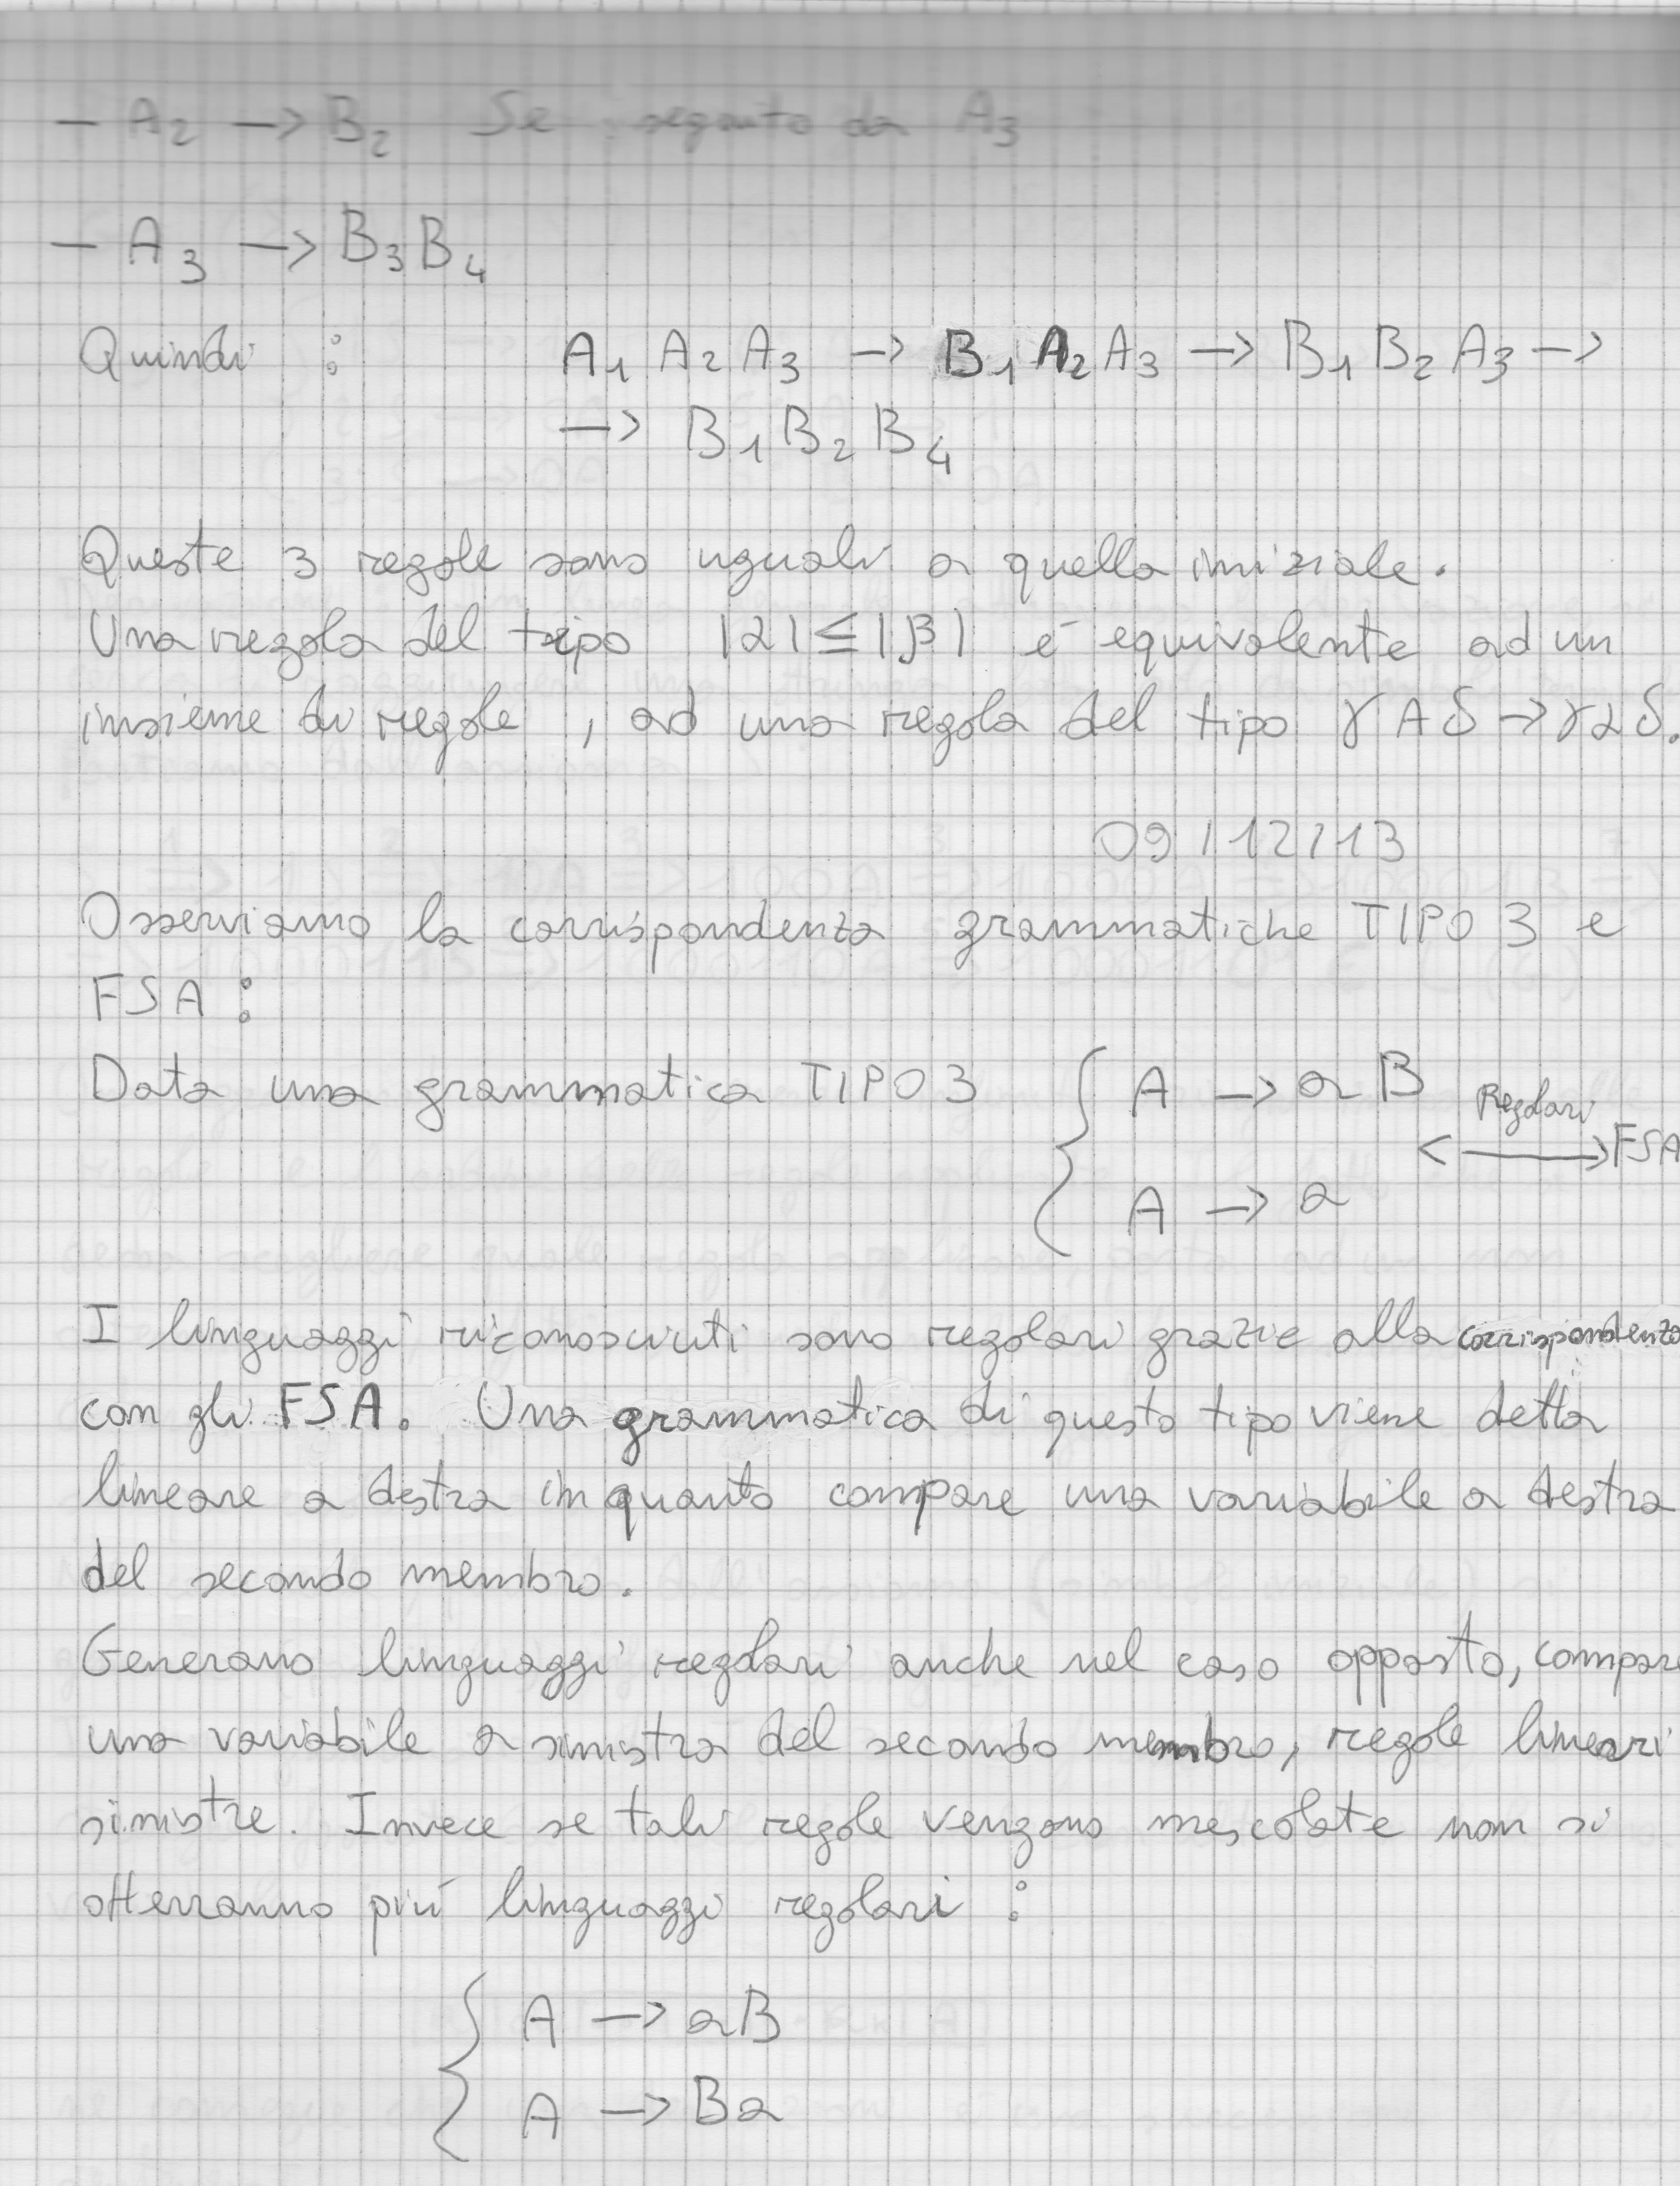 - A2 -> B2 Se seguito da A3
- A3 -> B3 B4
Quindi : A1 A2 A3 -> B1 A2 A3 -> B1 B2 A3 ->
-> B1 B2 B4
Queste 3 regole sono uguali a quella iniziale.
Una regola del tipo |α| ≤ |β| é equivalente ad un
insieme di regole , ad una regola del tipo γAδ -> γαδ.
09/12/13
Osserviamo la corrispondenza grammatiche TIPO 3 e
FSA :
Data una grammatica TIPO 3 { A -> aB <-> FSA
Regolari
A -> a
I linguaggi riconosciuti sono regolari grazie alla corrispondenza
con gli FSA. Una grammatica di questo tipo viene detta
lineare a destra in quanto compare una variabile a destra
del secondo membro.
Generano linguaggi regolari anche nel caso opposto, compare
una variabile a sinistra del secondo membro, regole lineari
sinistre. Invece se tali regole vengono mescolate non si
otterranno piú linguaggi regolari :
{ A -> aB
A -> Ba